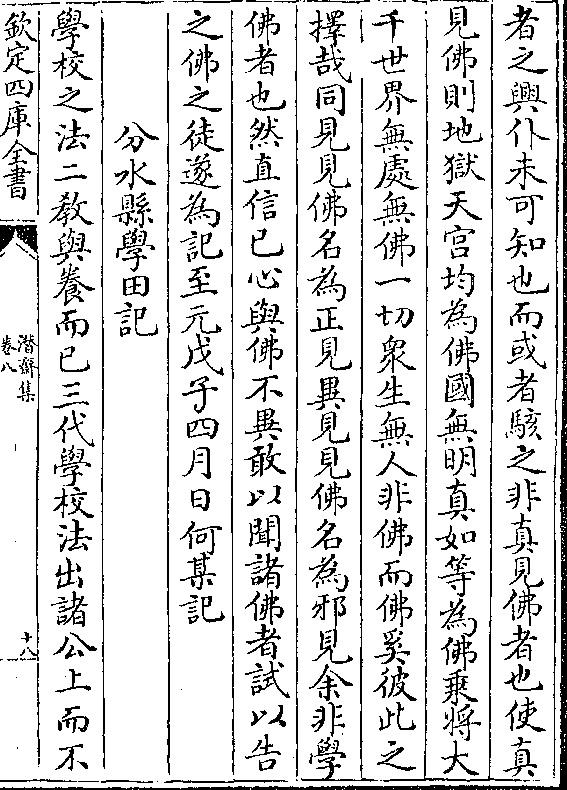 者之興仆未可知也而或者駭之非真見佛者也使真
見佛則地獄天宫均為佛國無明真如等為佛乗將大
千世界無處無佛一切衆生無人非佛而佛奚彼此之
擇哉同見見佛名為正見異見見佛名為邪見余非學
佛者也然直信已心與佛不異敢以聞諸佛者試以告
之佛之徒遂為記至元戊子四月日何某記
分水縣學田記
學校之法二教與養而已三代學校法出諸公上而不
欽定四庫全書
潛齋集
卷八
十八